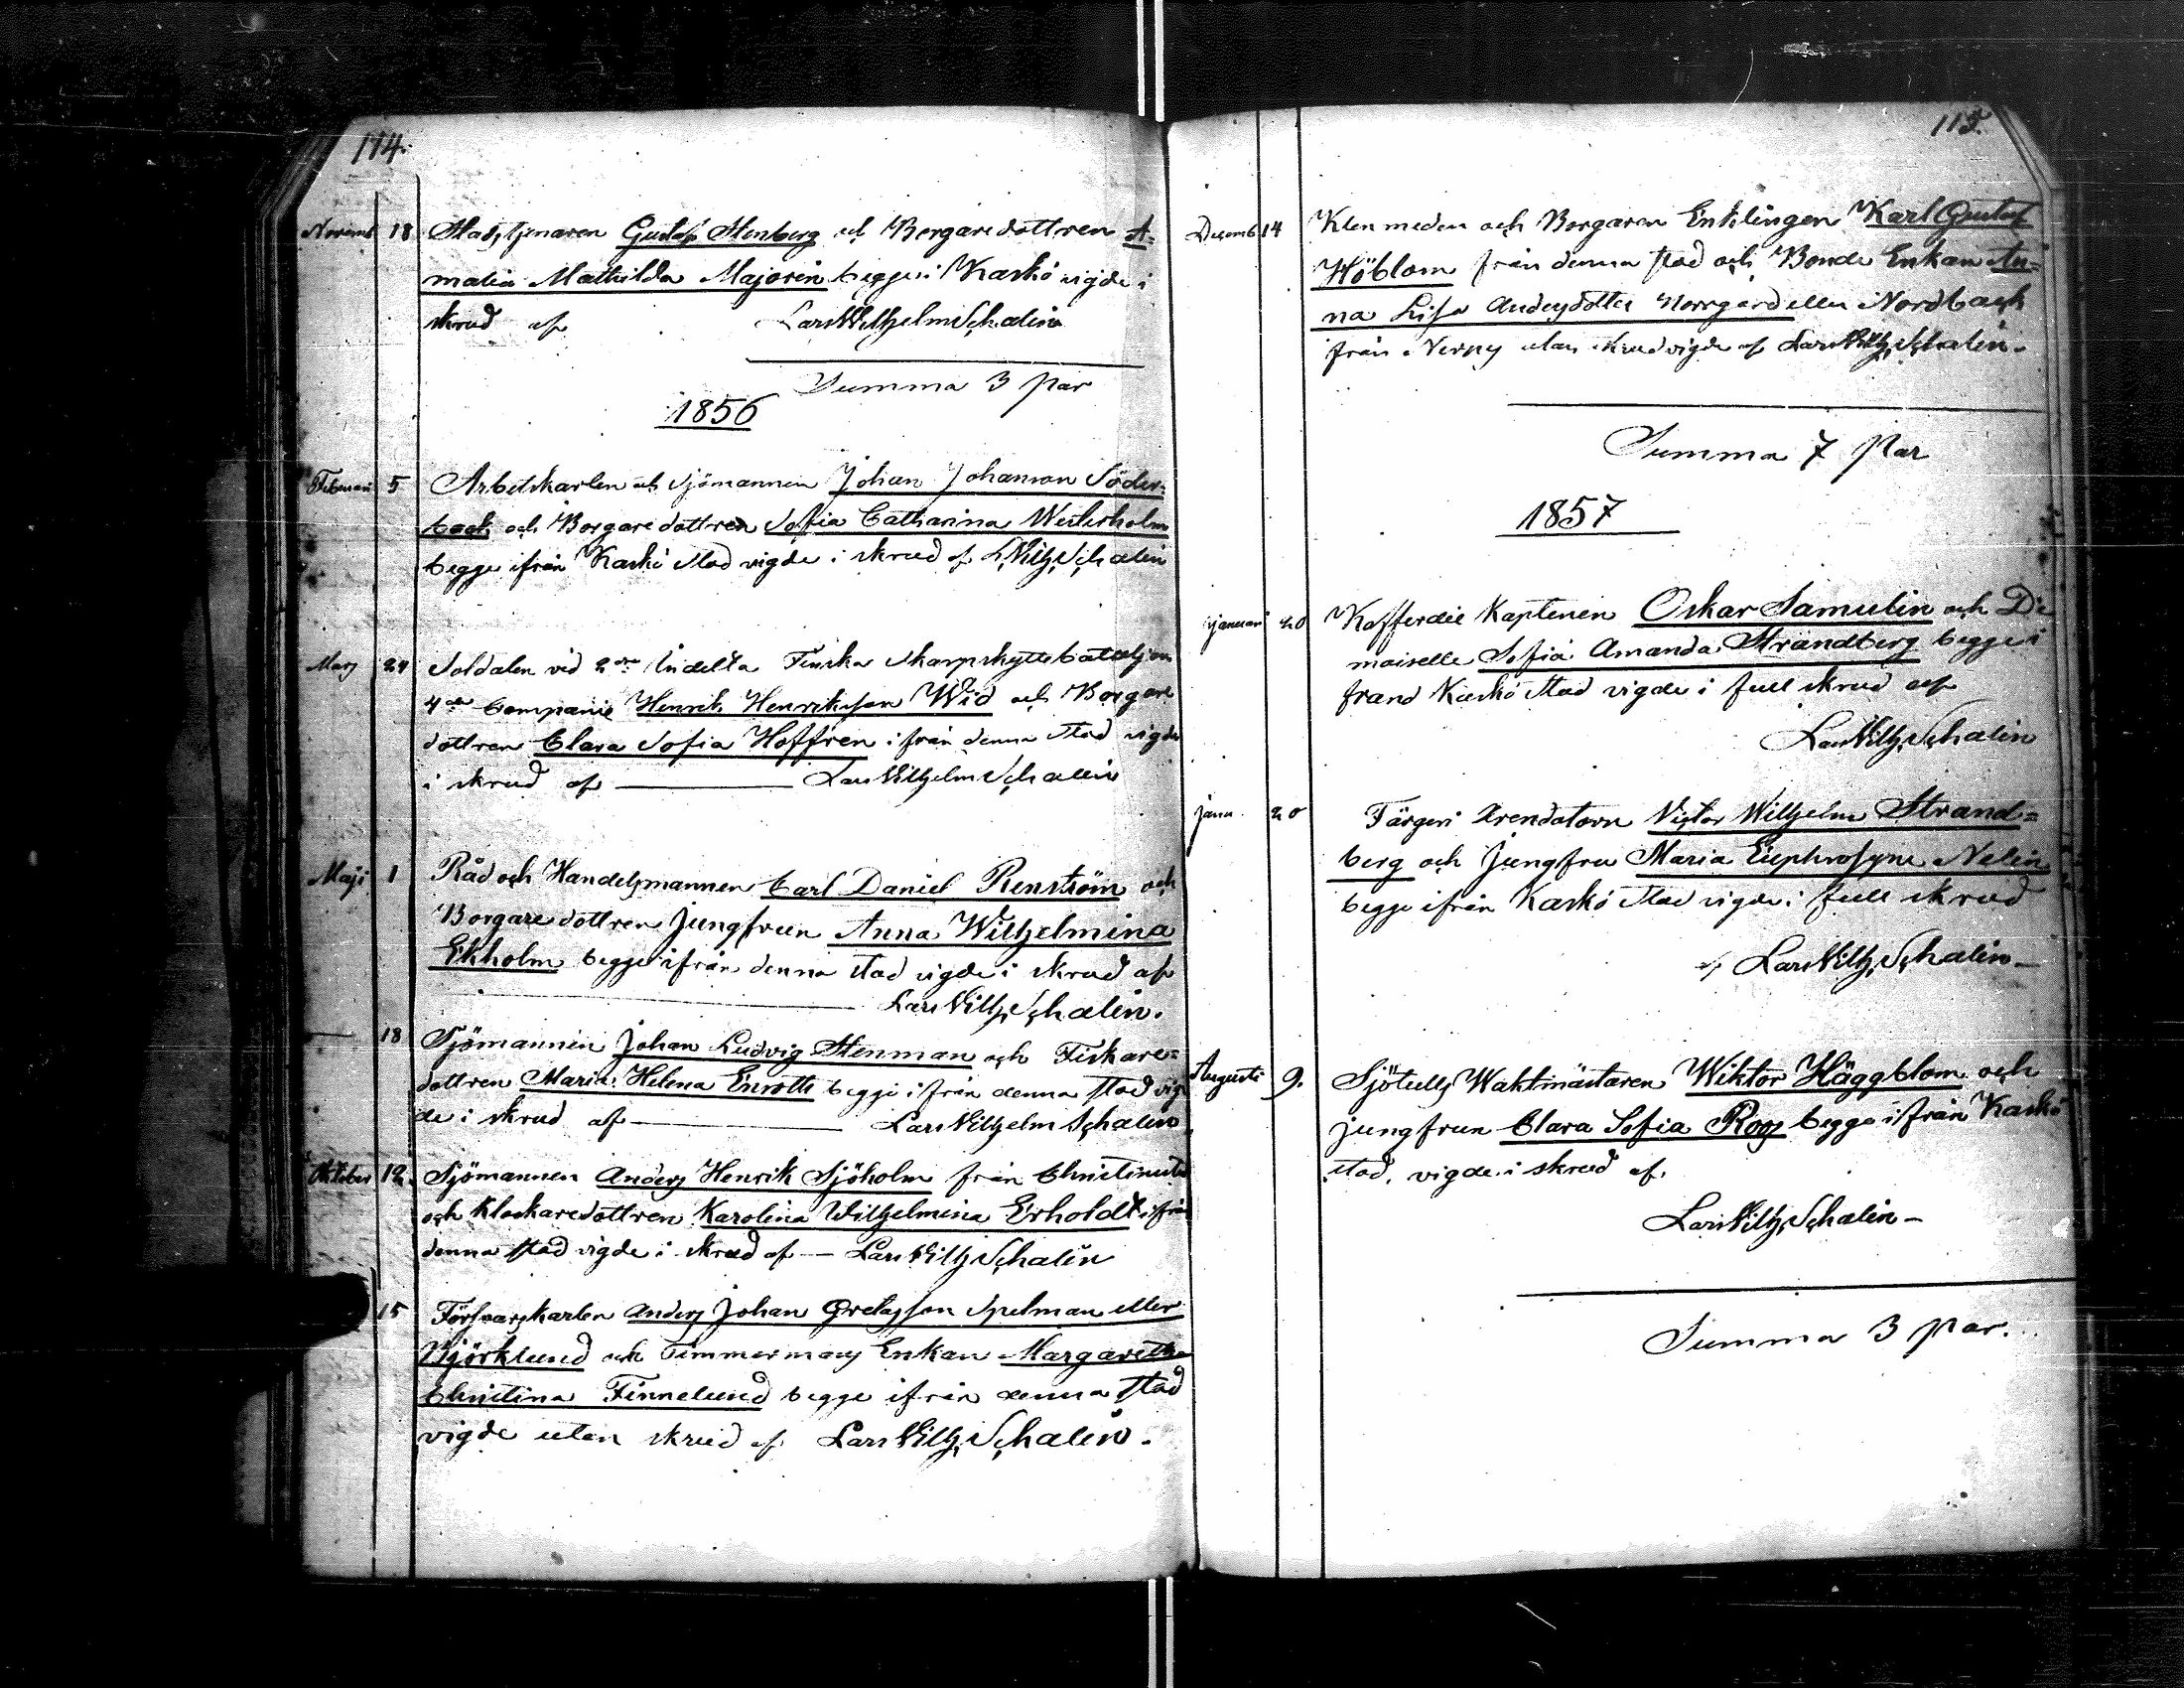 114.
Novemb 18 Stadstjenaren Gustaf Stenberg och Borgaredottren A-
malia Mathilda Majorin begge i Kaskö vigde i
skrud af Lars Wilhelm Schalin
Summa 3 par
1856
Februari 5 Arbetskarlen och Sjömannen Johan Johanson Söder-
back och Borgaredottren Sofia Catharina Westerholm
begge ifrån Kaskö stad vigde i skrud af L. Wilh. Schalin
Mars 24 Soldaten vid 2dra Indelta Finska Skarpskyttebataljon
4de Companie Henrik Henriksson Wid och Borgare
dottren Clara Sofia Hoffren ifrån denna stad vigde
i skrud af Lars Wilhelm Schalin
Maji 1 Råd och Handelsmannen Carl Daniel Renström och
Borgaredottren Jungfrun Anna Wilhelmina
Ekholm begge ifrån denna stad vigde i skrud af
Lars Wilh. Schalin.
— 18 Sjömannen Johan Ludvig Stenman och Fiskare-
dottren Maria Helena Enroth begge ifrån denna stad vig-
de i skrud af Lars Wilhelm Schalin
Oktober 12. Sjömannen Anders Henrik Sjöholm från Christinestad
och Klockaredottren Karolina Wilhelmina Erholdt ifrån
denna stad vigde i skrud af — Lars Wilh. Schalin
15 Försvarskarlen Anders Johan Gretasson Spelman eller
Björklund och Timmermans Enkan Margaretha
Christina Finnelund begge ifrån denna stad
vigde utan skrud af Lars Wilh. Schalin.
115.
Decemb 14 Klensmeden och Borgaren Enklingen Karl Gustaf
Höblom från denna stad och Bonde Enkan An-
na Lisa Andersdotter Norrgård eller Nordback
från Nerpes utan skrud vigde af Lars Wilh. Schalin.
Summa 7 Par
1857
Januari 20 Kofferdie Kaptenen Oskar Samulin och De
moiselle Sofia Amanda Strandberg begge i
frand Kaskö stad vigde i full skrud af
Lars Wilh. Schalin
Janu. 20 Färgeri Arendatorn Victor Wilhelm Strand-
berg och Jungfru Maria Euphrosyne Nelin
begge ifrån Kaskö stad vigde i full skrud
af Lars Wilh. Schalin —
Augusti 9. Sjötulls Waktmästaren Wiktor Häggblom och
jungfrun Clara Sofia Roos begge ifrån Kaskö
stad, vigde i skrud af.
Lars Wilh. Schalin —
Summa 3 par.